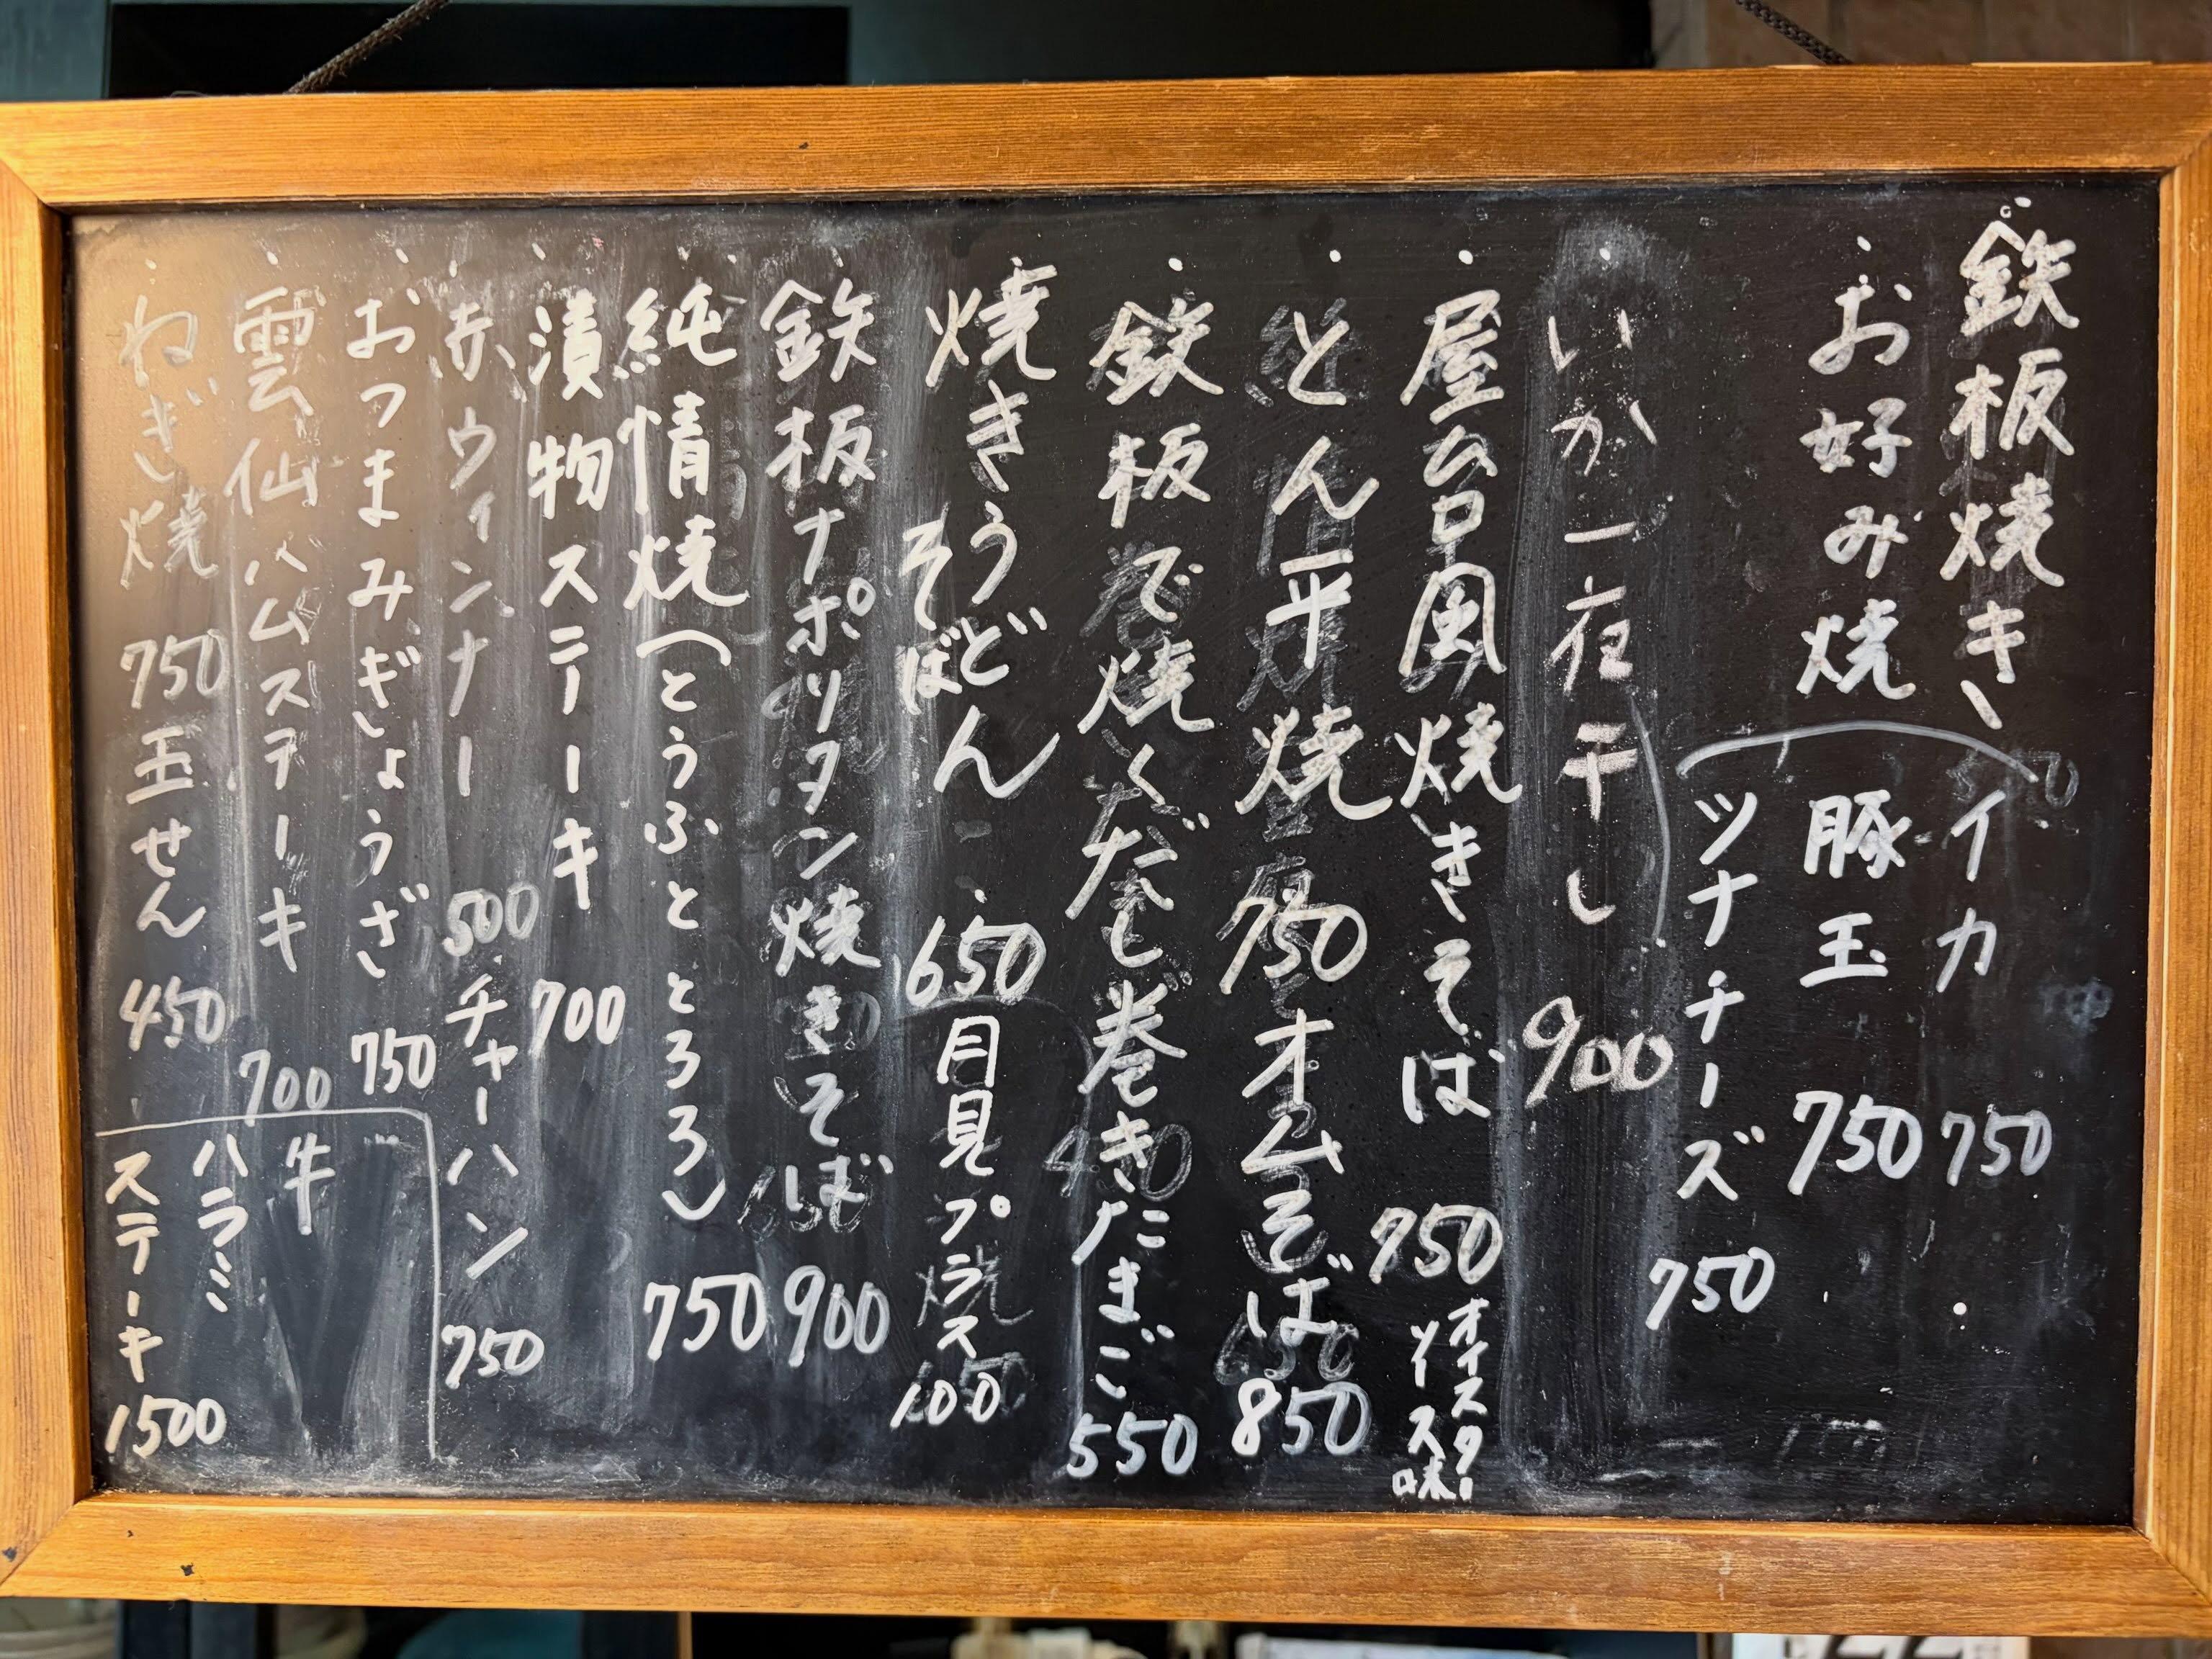 鉄板焼き
お好み焼
イカ 750
豚玉 750
ツナチーズ 750
いか一夜干し 900
屋台風焼きそば 750 オイスターソース味
とん平焼 750 オムそば 850
鉄板で焼くだし巻きたまご 550
焼きうどん
そばん 650 月見プラス100
鉄板ナポリタン焼きそば 900
純情焼(とうふととろろ) 750
漬物ステーキ 700
赤ウィンナー 500 チャーハン 750
おつまみぎょうざ 750
雲仙ハムステーキ 700
ねぎ焼 750 玉せん 450
牛
ハラミ
ステーキ 1500